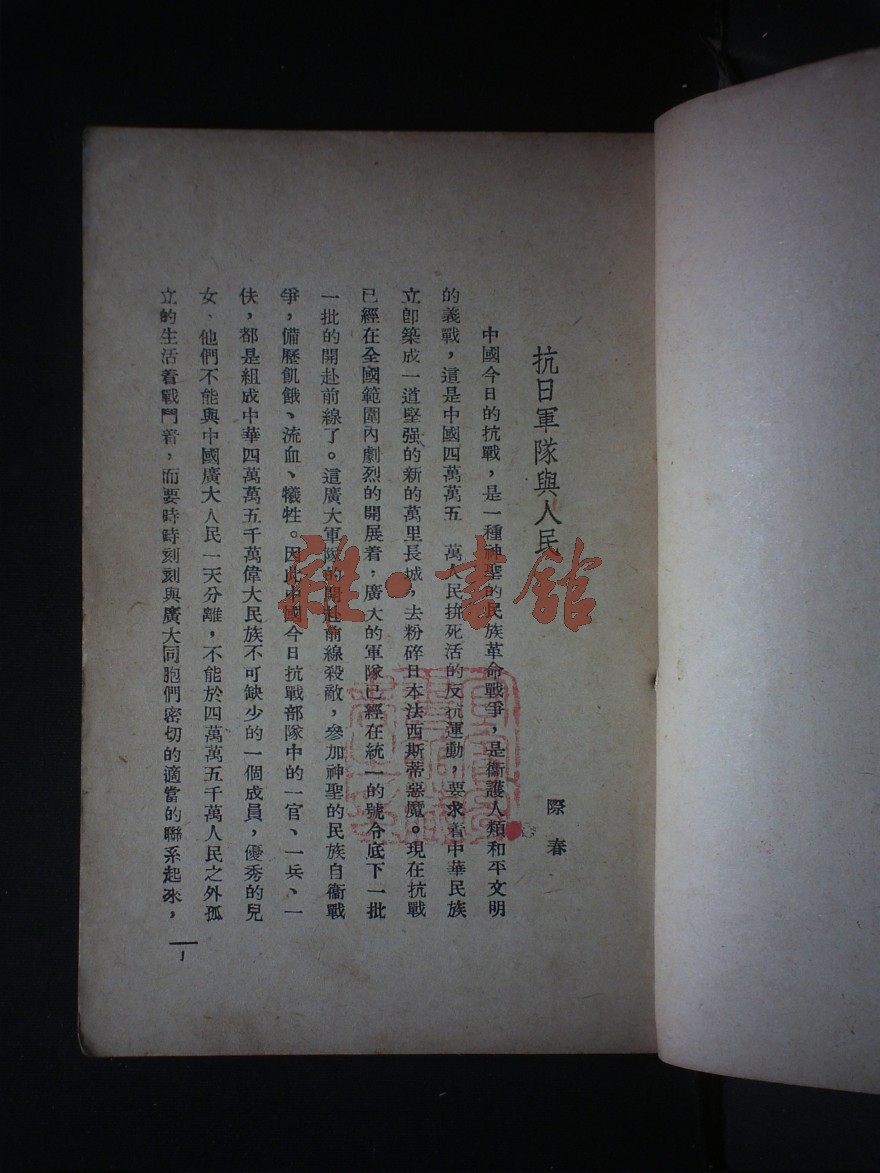 抗日軍隊與人民
際春
中國今日的抗戰，是一種神聖的民族革命戰爭，是衞護人類和平文明
的義戰，這是中國四萬萬五 萬人民拚死活的反抗運動，要求着中華民族
立卽築成一道堅强的新的萬里長城，去粉碎日本法西斯蒂惡魔。現在抗戰
已經在全國範圍內劇烈的開展着，廣大的軍隊已經在統一的號令底下一批
一批的開赴前線了。這廣大軍隊的開赴前線殺敵，參加神聖的民族自衞戰
爭，備歷飢餓、流血、犧牲。因此中國今日抗戰部隊中的一官、一兵、一
伕，都是組成中華四萬萬五千萬偉大民族不可缺少的一個成員，優秀的兒
女、他們不能與中國廣大人民一天分離，不能於四萬萬五千萬人民之外孤
立的生活着戰鬥着，而要時時刻刻與廣大同胞們密切的適當的聯系起來，
1
雜·書館